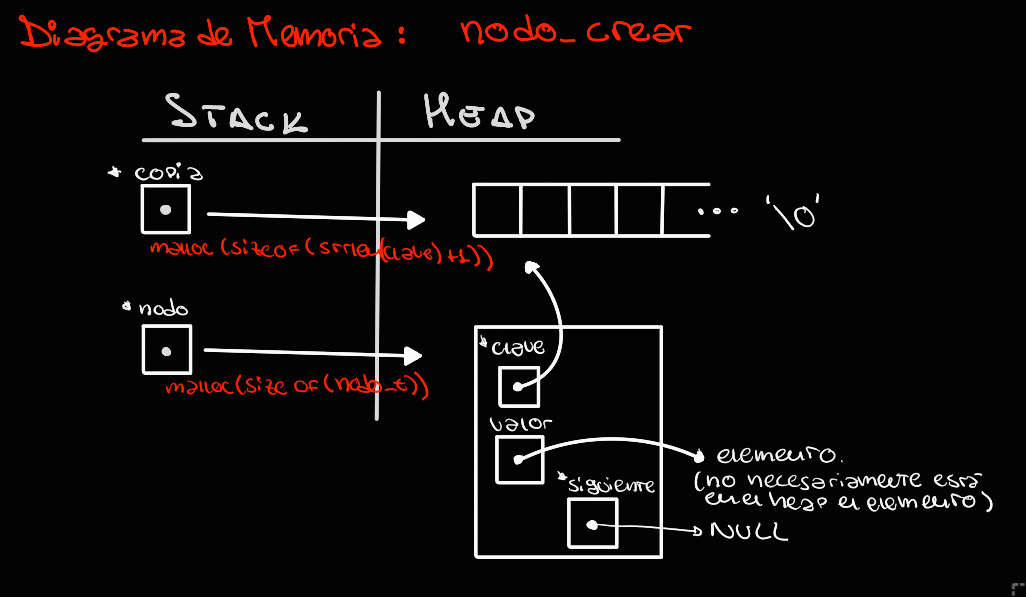 Diagrama de Memoria : nodo_crear
STACK HEAP
* copia
... '\0'
malloc (sizeof (strlen(clave) +1))
* nodo
malloc(sizeof(nodo_t))
* clave
valor
elemento.
(no necesariamente está
en el heap el elemento)
* siguiente
NULL